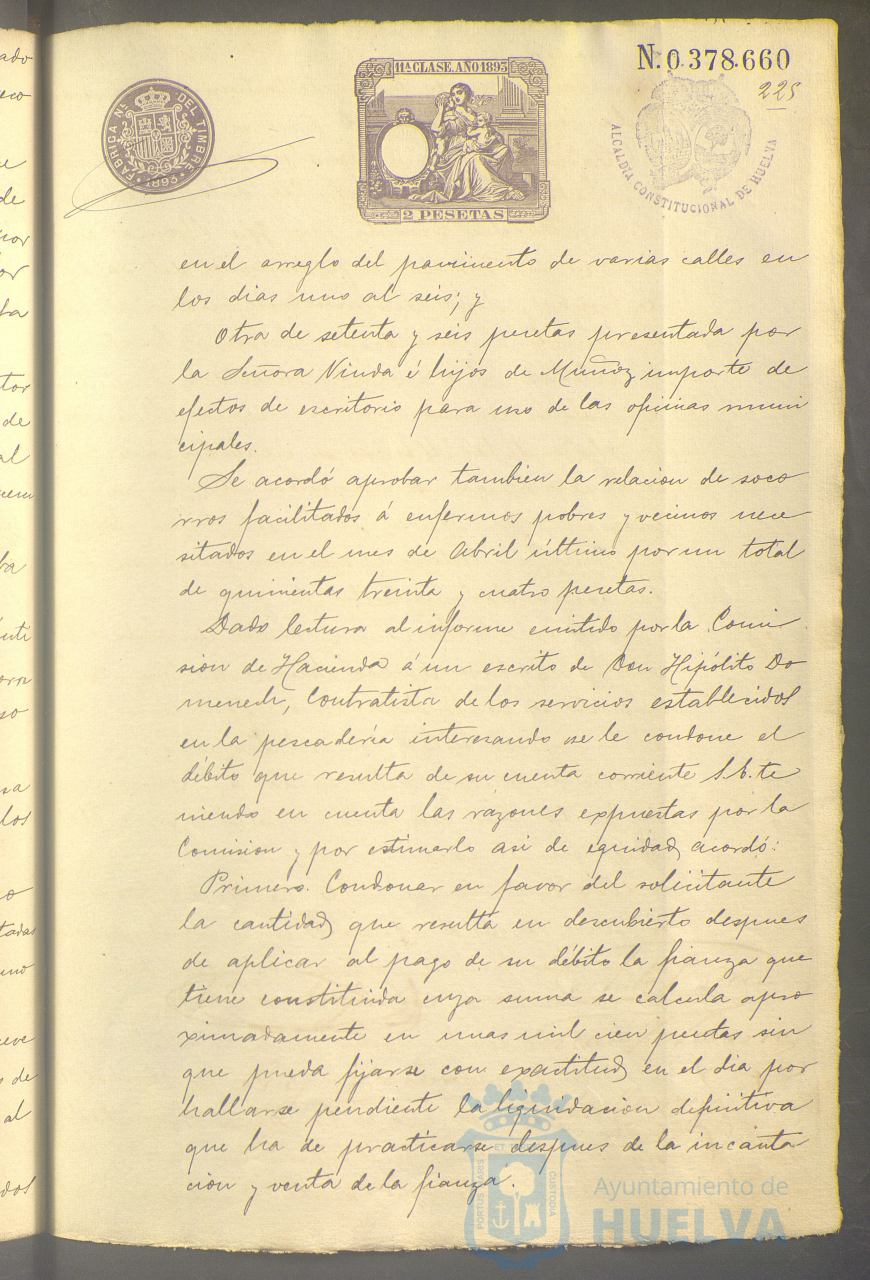 11ª CLASE. AÑO 1893
N. 0.378.660
225
FABRICA Nº DEL TIMBRE
1893
ALCALDÍA CONSTITUCIONAL DE HUELVA
2 PESETAS
en el arreglo del pavimento de varias calles en
los dias uno al seis; y
Otra de setenta y seis pesetas presentada por
la Señora Viuda é hijos de Muñoz importe de
efectos de escritorio para uso de las oficinas muni
cipales.
Se acordó aprobar tambien la relacion de soco
rros facilitados á enfermos pobres y vecinos nece
sitados en el mes de Abril último por un total
de quinientas treinta y cuatro pesetas.
Dado lectura al informe emitido por la Comi
sion de Hacienda á un escrito de Don Hipólito Do
menech, Contratista de los servicios establecidos
en la pescadería interesando se le condone el
débito que resulta de su cuenta corriente S.E. te
niendo en cuenta las razones expuestas por la
Comision y por estimarlo asi de equidad, acordó:
Primero. Condonar en favor del solicitante
la cantidad, que resulta en descubierto despues
de aplicar al pago de su débito la fianza que
tiene constituida cuya suma se calcula apro
ximadamente en unas mil cien pesetas sin
que pueda fijarse con exactitud, en el dia por
hallarse pendiente la liquidacion definitiva
que ha de practicarse despues de la incauta
cion y venta de la fianza.
PORTUS MARIS ET TERRAE CUSTODIA
Ayuntamiento de
HUELVA